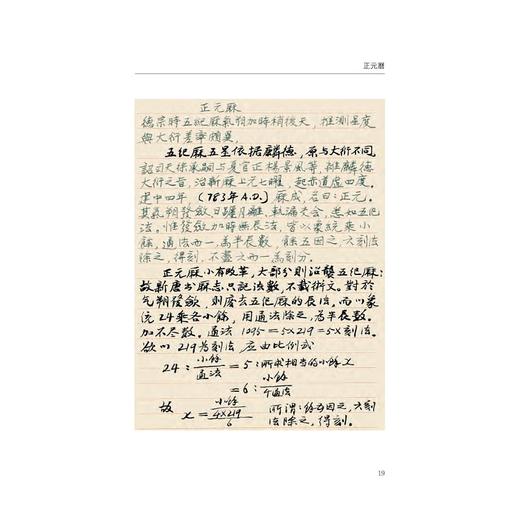 正元曆
正元厤
德宗時五紀厤氣朔加時稍後天，推測星度
與大衍差率頗異。
五紀厤五星依據麟德，原与大衍不同，
詔司天徐承嗣与夏官正楊景風等，雜麟德
大衍之旨，治新厤上元七曜，起赤道虛四度。
建中四年 (783年A.D.) 厤成，名曰：正元。
其氣朔發斂日躔月離，軌漏交会，悉如五紀
法，惟發斂加時無辰法，皆以象統乘小
餘，通法而一，為半辰數，餘五因之，六刻法
除之，得刻，不盡六而一為刻分。
正元厤小有改革，大部分則沿襲五紀厤；
故新唐书厤志只記法數，不載術文。對於
气朔發斂，則廢去五紀厤的辰法。而以象
統24乘各小餘，用通法除之，為半辰數。
加不尽數。通法 1095=5×219=5×刻法。
欲以219為刻法 应由比例式
24：小餘/通法 = 5：所求相当的小餘x
= 6：小餘/4通法
故 x = 小餘/(4×219/6) 所謂：餘五因之，六刻
法除之，得刻。
19